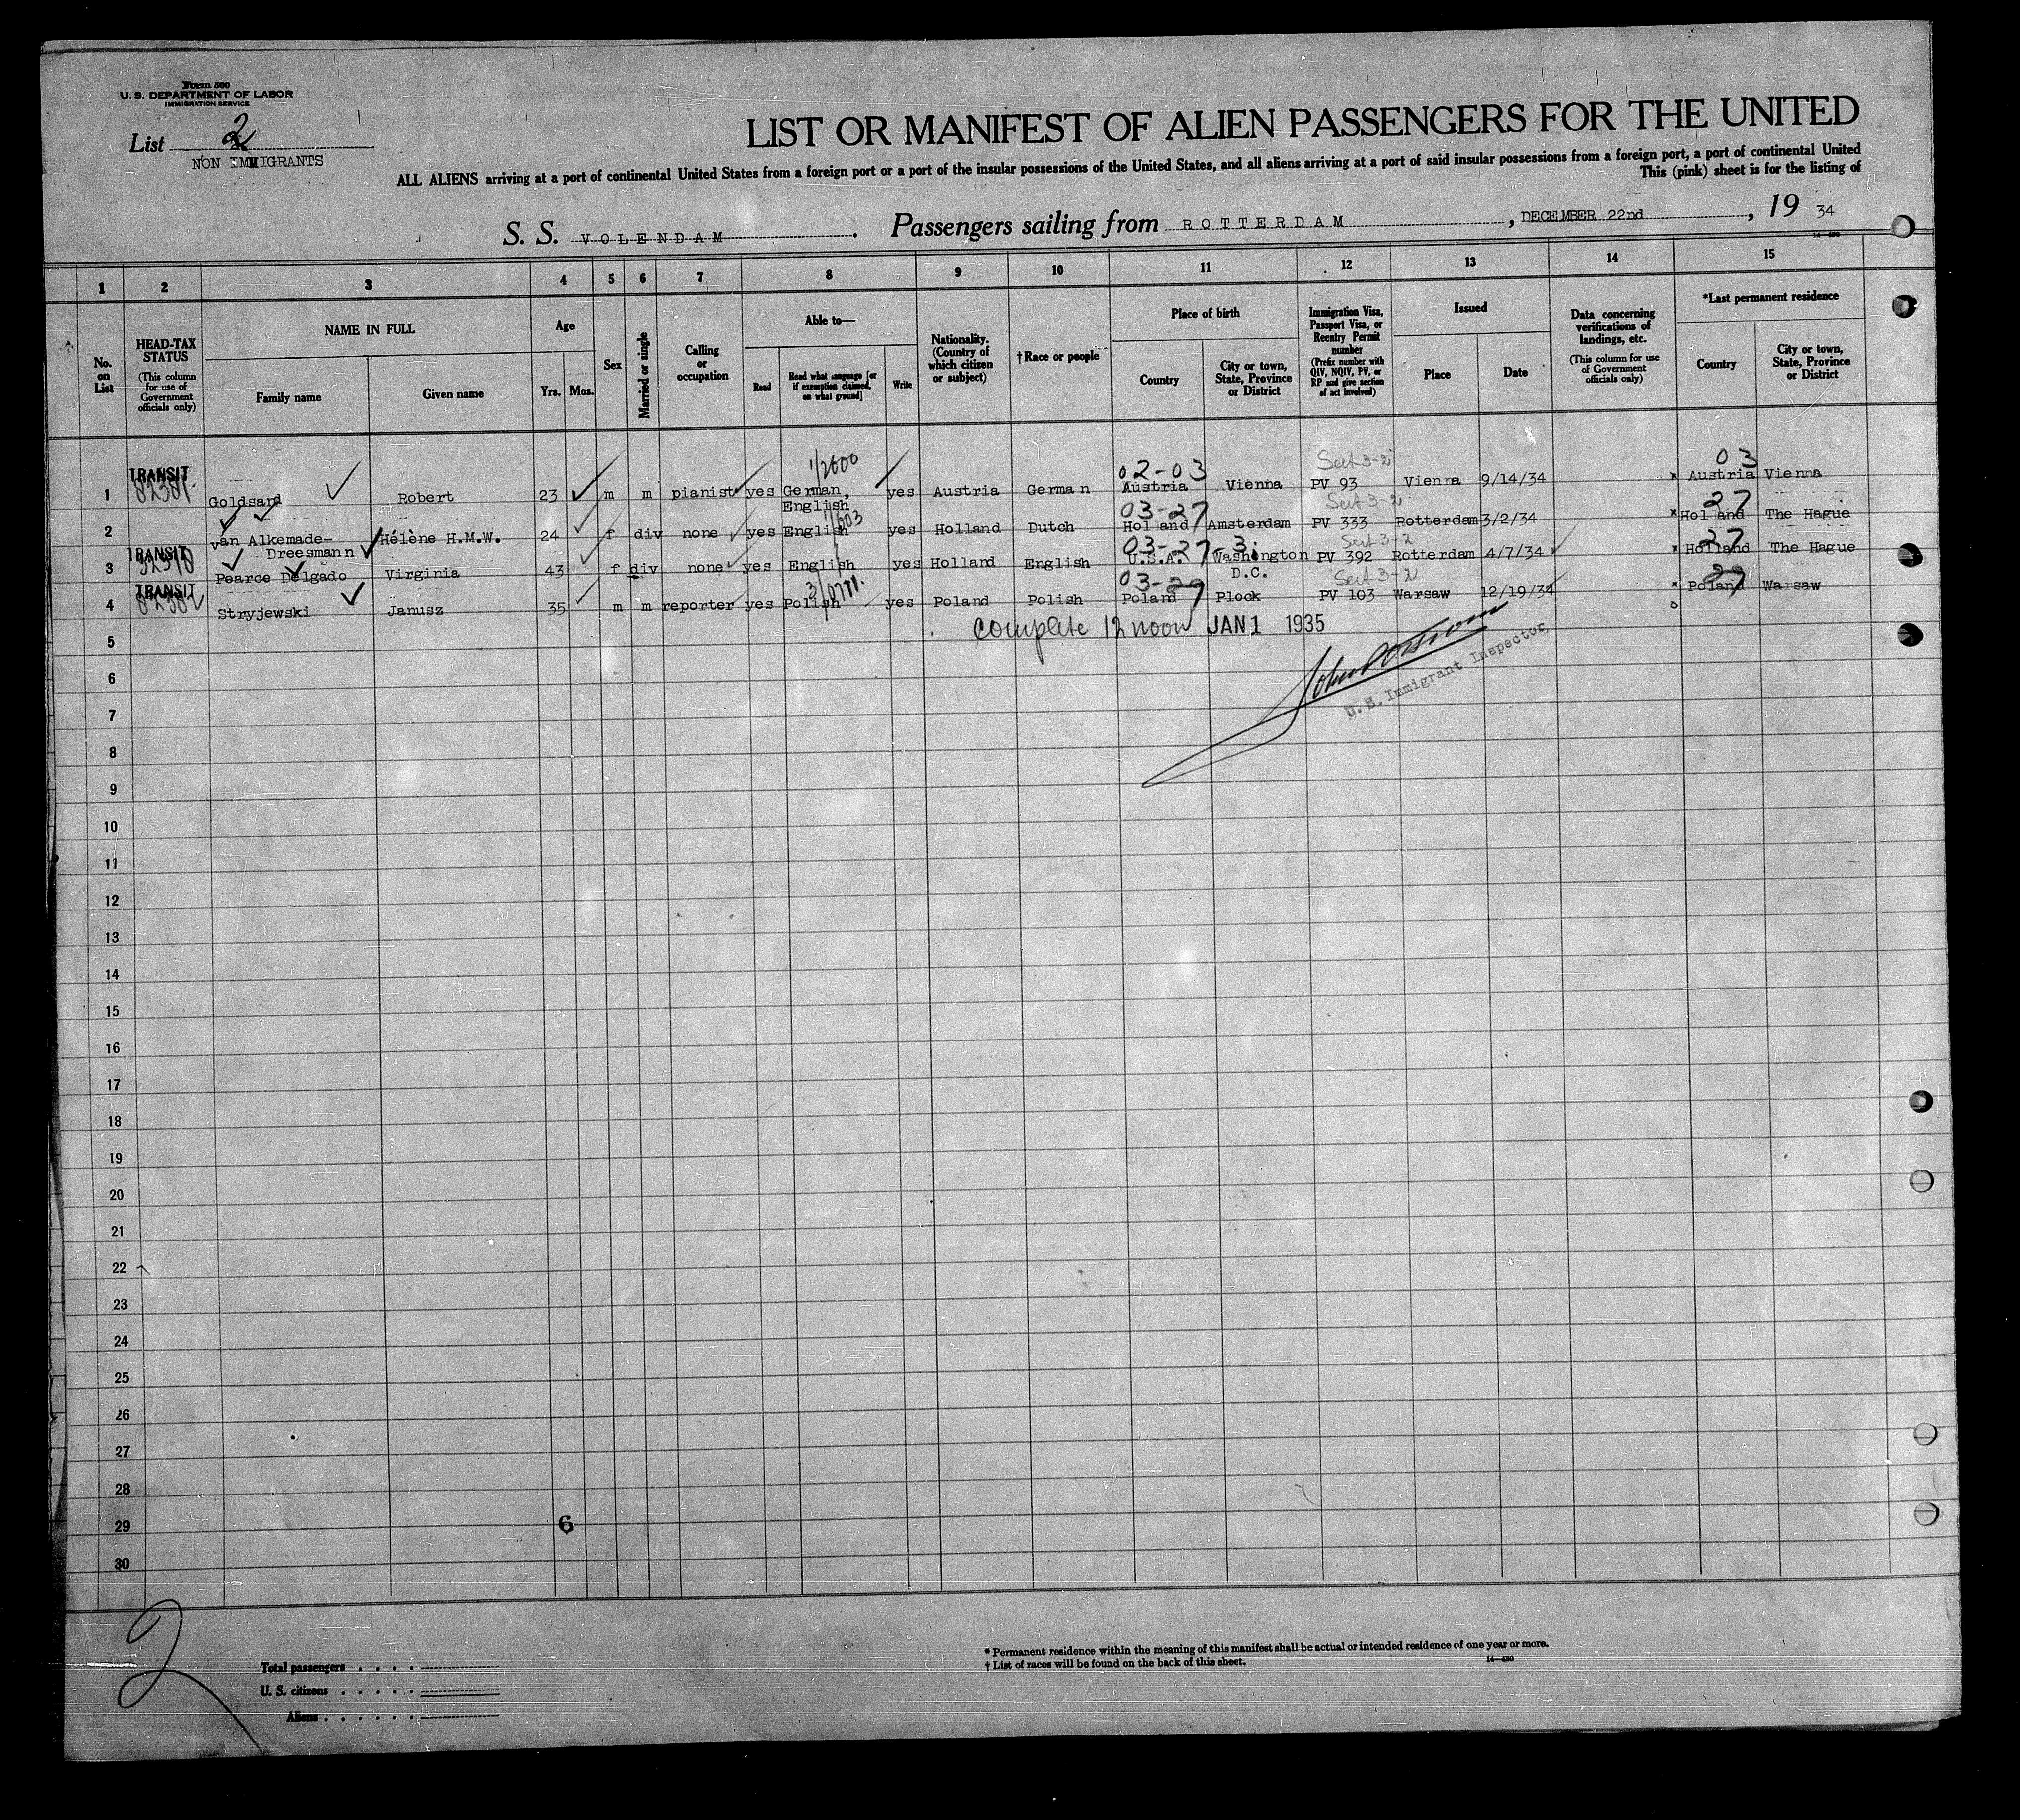 Form 500
U. S. DEPARTMENT OF LABOR
IMMIGRATION SERVICE
List 2
NON IMMIGRANTS
LIST OR MANIFEST OF ALIEN PASSENGERS FOR THE UNITED
ALL ALIENS arriving at a port of continental United States from a foreign port or a port of the insular possessions of the United States, and all aliens arriving at a port of said insular possessions from a foreign port, a port of continental United
This (pink) sheet is for the listing of
S. S. VOLENDAM. Passengers sailing from ROTTERDAM, DECEMBER 22nd, 19 34
14—480
1 2 3 4 5 6 7 8 9 10 11 12 13 14 15
No. on List
HEAD-TAX STATUS (This column for use of Government officials only)
NAME IN FULL
Family name
Given name
Age
Yrs. Mos.
Sex
Married or single
Calling or occupation
Able to—
Read
Read what language [or if exemption claimed, on what ground]
Write
Nationality. (Country of which citizen or subject)
†Race or people
Place of birth
Country
City or town, State, Province or District
Immigration Visa, Passport Visa, or Reentry Permit number (Prefix number with QIV, NQIV, PV, or RP and give section of act involved)
Issued
Place
Date
Data concerning verifications of landings, etc. (This column for use of Government officials only)
*Last permanent residence
Country
City or town, State, Province or District
1/2600 02-03 Sect 3-2 03
1 TRANSIT 82381 Goldsand Robert 23 m m pianist yes German, English yes Austria German Austria Vienna PV 93 Vienna 9/14/34 x Austria Vienna
03-27 Sect 3-2 27
2 van Alkemade-Dreesmann Hélène H.M.W. 24 f div none yes English yes Holland Dutch Holland Amsterdam PV 333 Rotterdam 3/2/34 x Holland The Hague
03-27-3 Sect 3-2 27
3 TRANSIT Pearce Delgado Virginia 43 f div none yes English yes Holland English U.S.A. Washington D.C. PV 392 Rotterdam 4/7/34 x Holland The Hague
03-29 Sect 3-2 29
4 TRANSIT 82382 Stryjewski Janusz 35 m m reporter yes Polish yes Poland Polish Poland Plock PV 103 Warsaw 12/19/34 x Poland Warsaw
complete 12 noon JAN 1 1935
U. S. Immigrant Inspector
5
6
7
8
9
10
11
12
13
14
15
16
17
18
19
20
21
22
23
24
25
26
27
28
29 6
30
2
Total passengers
U. S. citizens
Aliens
* Permanent residence within the meaning of this manifest shall be actual or intended residence of one year or more.
† List of races will be found on the back of this sheet.
14—480